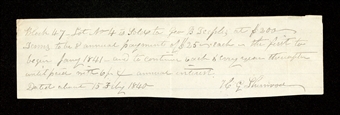 Block 47 - Lot No 4 is sold to Geo B Peoples at $200 -
Terms to be 8 annual payments of $25 - each - the first to
begin Jany 1841 - and to continue each & every year thereafter
until paid with 6 pr ct annual interest.
Dated about 15 Feby 1840
H G